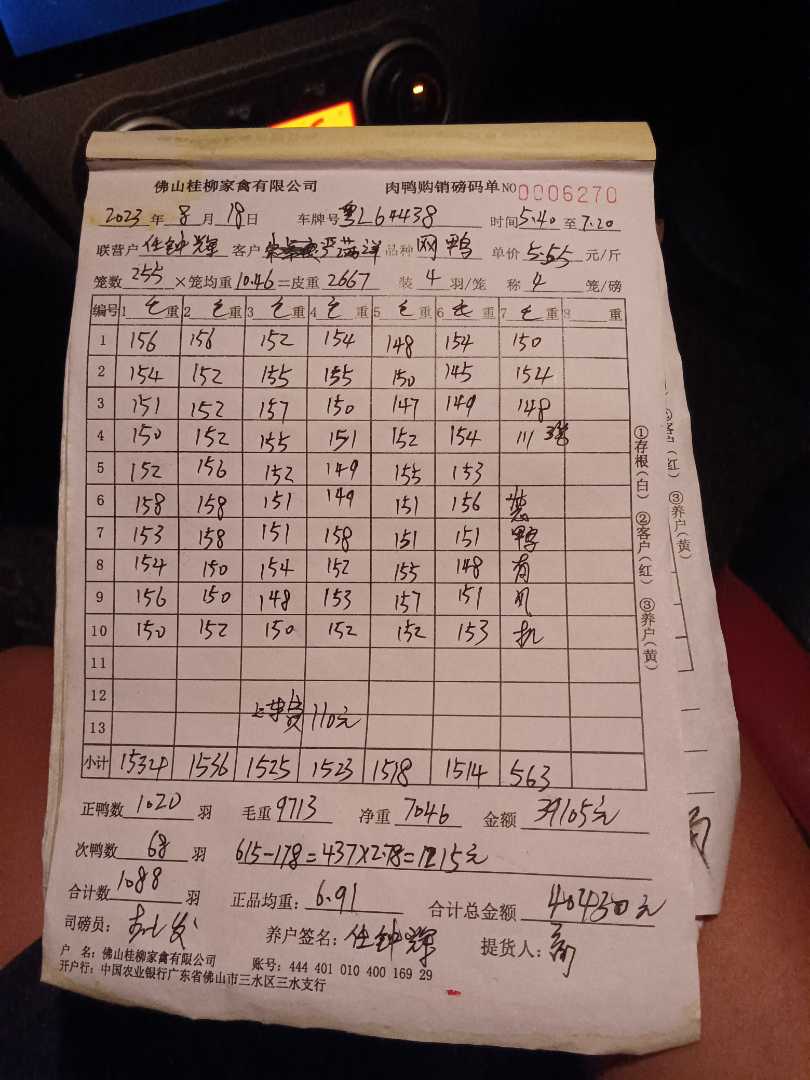 佛山桂柳家禽有限公司 肉鸭购销磅码单 NO 0006270
2023年8月18日 车牌号粤L64438 时间5.40至7.20
联营户任钟辉 客户 品种网鸭 单价5.55元/斤
笼数255×笼均重10.46=皮重2667 装4羽/笼 称4笼/磅
编号 1毛重 2毛重 3毛重 4毛重 5毛重 6毛重 7毛重 8重
1 156 156 152 154 148 154 150
2 154 152 155 155 150 145 154
3 151 152 157 150 147 149 148
4 150 152 155 151 152 154 111 3笼
5 152 156 152 149 155 153
6 158 158 151 149 151 156 装
7 153 158 151 158 151 151 鸭
8 154 150 154 152 155 148 有
9 156 150 148 153 157 151 风
10 150 152 150 152 152 153 机
11
12
上车费110元
13
小计 1534 1536 1525 1523 1518 1514 563
正鸭数1020羽 毛重9713 净重7046 金额39105元
次鸭数68羽 615-178=437×2.78=1215元
合计数1088羽 正品均重:6.91 合计总金额40430元
司磅员: 养户签名:任钟辉 提货人:
户 名:佛山桂柳家禽有限公司 账号:444 401 010 400 169 29
开户行:中国农业银行广东省佛山市三水区三水支行
①存根(白) ②客户(红) ③养户(黄)
客户(红) ③养户(黄)